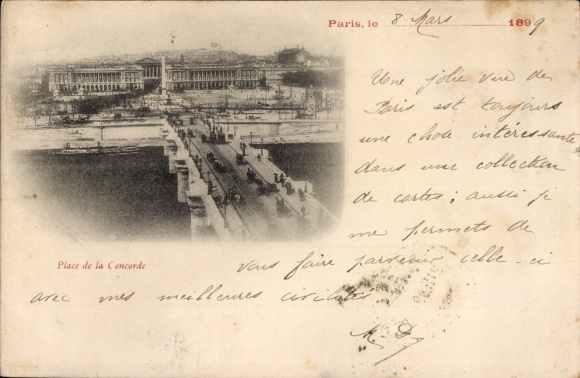 Paris, le 8 Mars 1899
Une jolie vue de
Paris est toujours
une chose intéressante
dans une collection
de cartes; aussi je
me permets de
Place de la Concorde
vous faire parvenir celle-ci
avec mes meilleures civilités